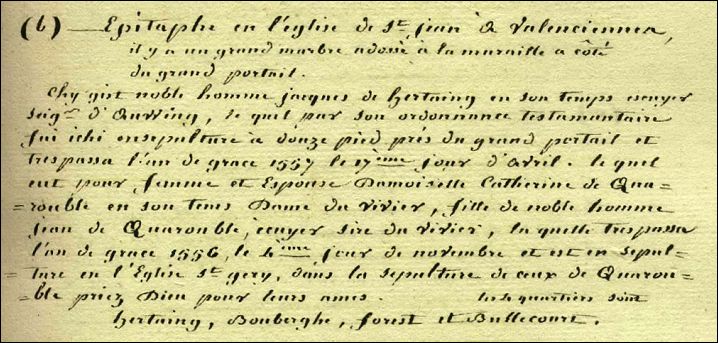 (b) — Epitaphe en l'église de St. jean à Valenciennes,
il y a un grand marbre adossé à la muraille a côté
du grand portail.
Chy gist noble homme jacques de hertaing en son temps escuyer
seigr. d'Auwing, le quel par son ordonnance testamentaire
fut ichi ensepulturé à douze pied prés du grand portail et
trespassa l'an de grace 1557 le 17ème jour d'avril. le quel
eut pour femme et Espouse Damoiselle Catherine de Qua=
=rouble en son tems Dame du vivier, fille de noble homme
jean de Quarouble, ecuyer sire du vivier, la quelle trespassa
l'an de grace 1556, le 4ème jour de novembre et est en sepul=
=ture en l'Eglise St. gery, dans la sepulture de ceux de Quarou=
=ble priez Dieu pour leurs ames. les 4 quartiers sont
hertaing, Bouberghe, forest et Bullecourt.